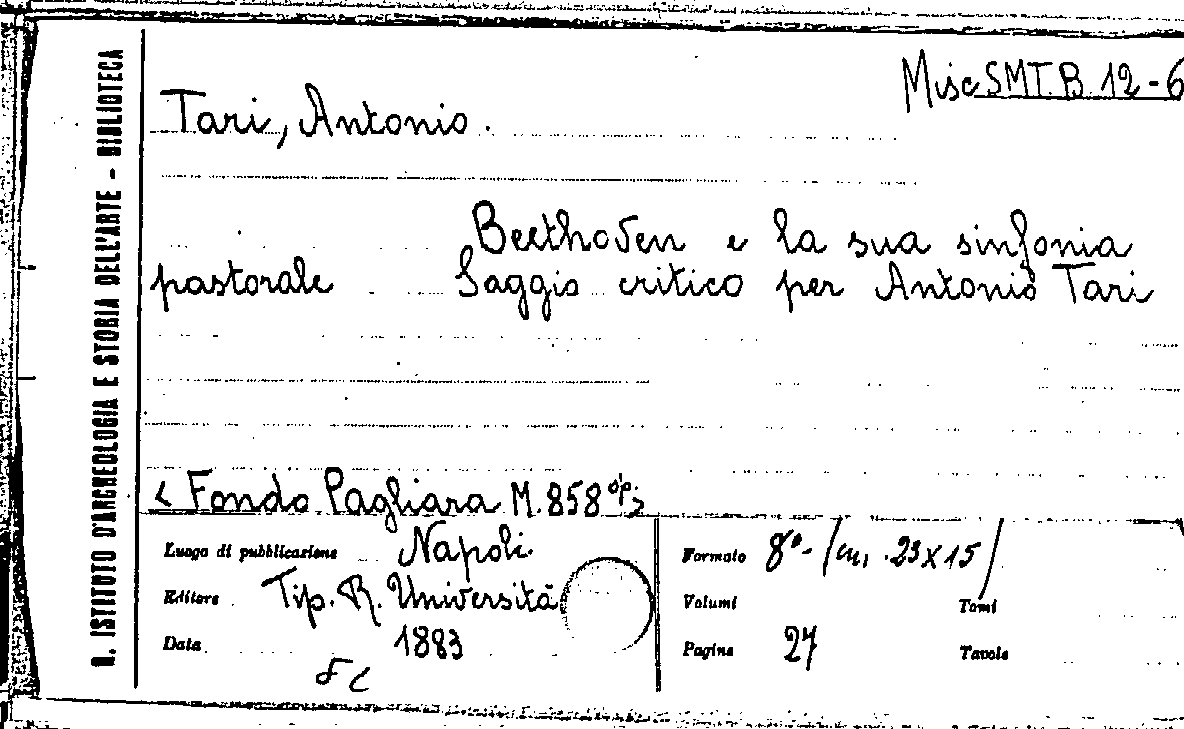 Misc SMT. B. 12-6
Tari, Antonio.
Beethoven e la sua sinfonia
pastorale Saggio critico per Antonio Tari
< Fondo Pagliara M. 858 op>
Luogo di pubblicazione Napoli
Editore Tip. R. Università
Data 1883
Formato 8°- /cm. 23x15/
Volumi Tomi
Pagine 27 Tavole
R. ISTITUTO D'ARCHEOLOGIA E STORIA DELL'ARTE - BIBLIOTECA